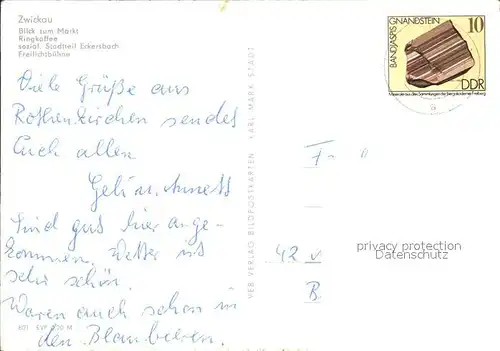 Zwickau
Blick zum Markt
Ringkaffee
sozial. Stadtteil Eckersbach
Freilichtbühne
BANDJASPIS GNANDSTEIN
10
DDR
Minerale aus den Sammlungen der Bergakademie Freiberg
Viele Grüße aus
Rothenkirchen sendet
Euch allen
Sind gut hier ange-
kommen. Wetter ist
sehr schön.
Waren auch schon in
den Blaubeeren.
VEB VERLAG BILDPOSTKARTEN KARL MARX STADT
42
B
privacy protection
Datenschutz